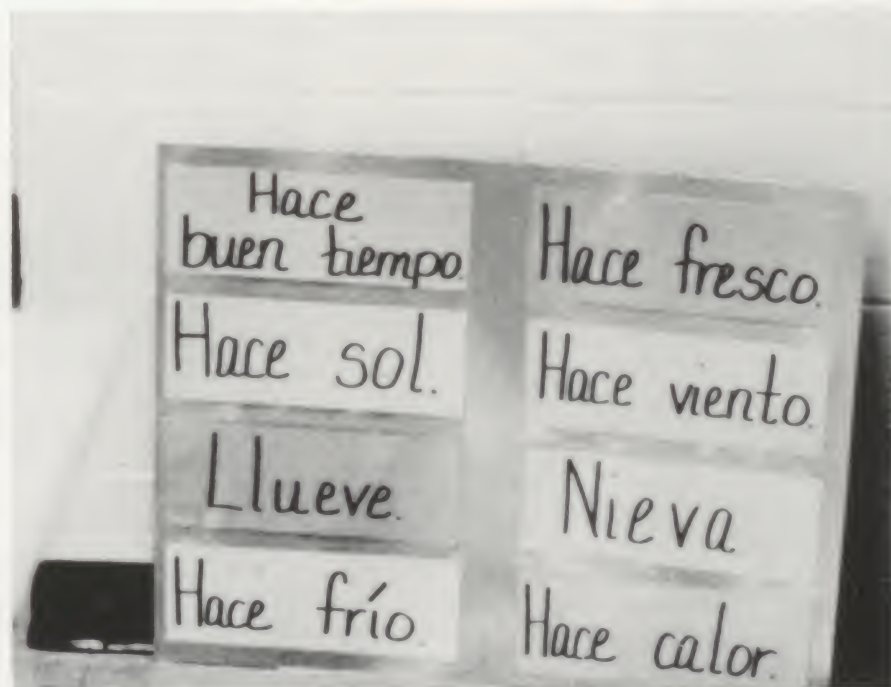 Hace
buen tiempo.
Hace sol.
Llueve.
Hace frío.
Hace fresco.
Hace viento.
Nieva
Hace calor.